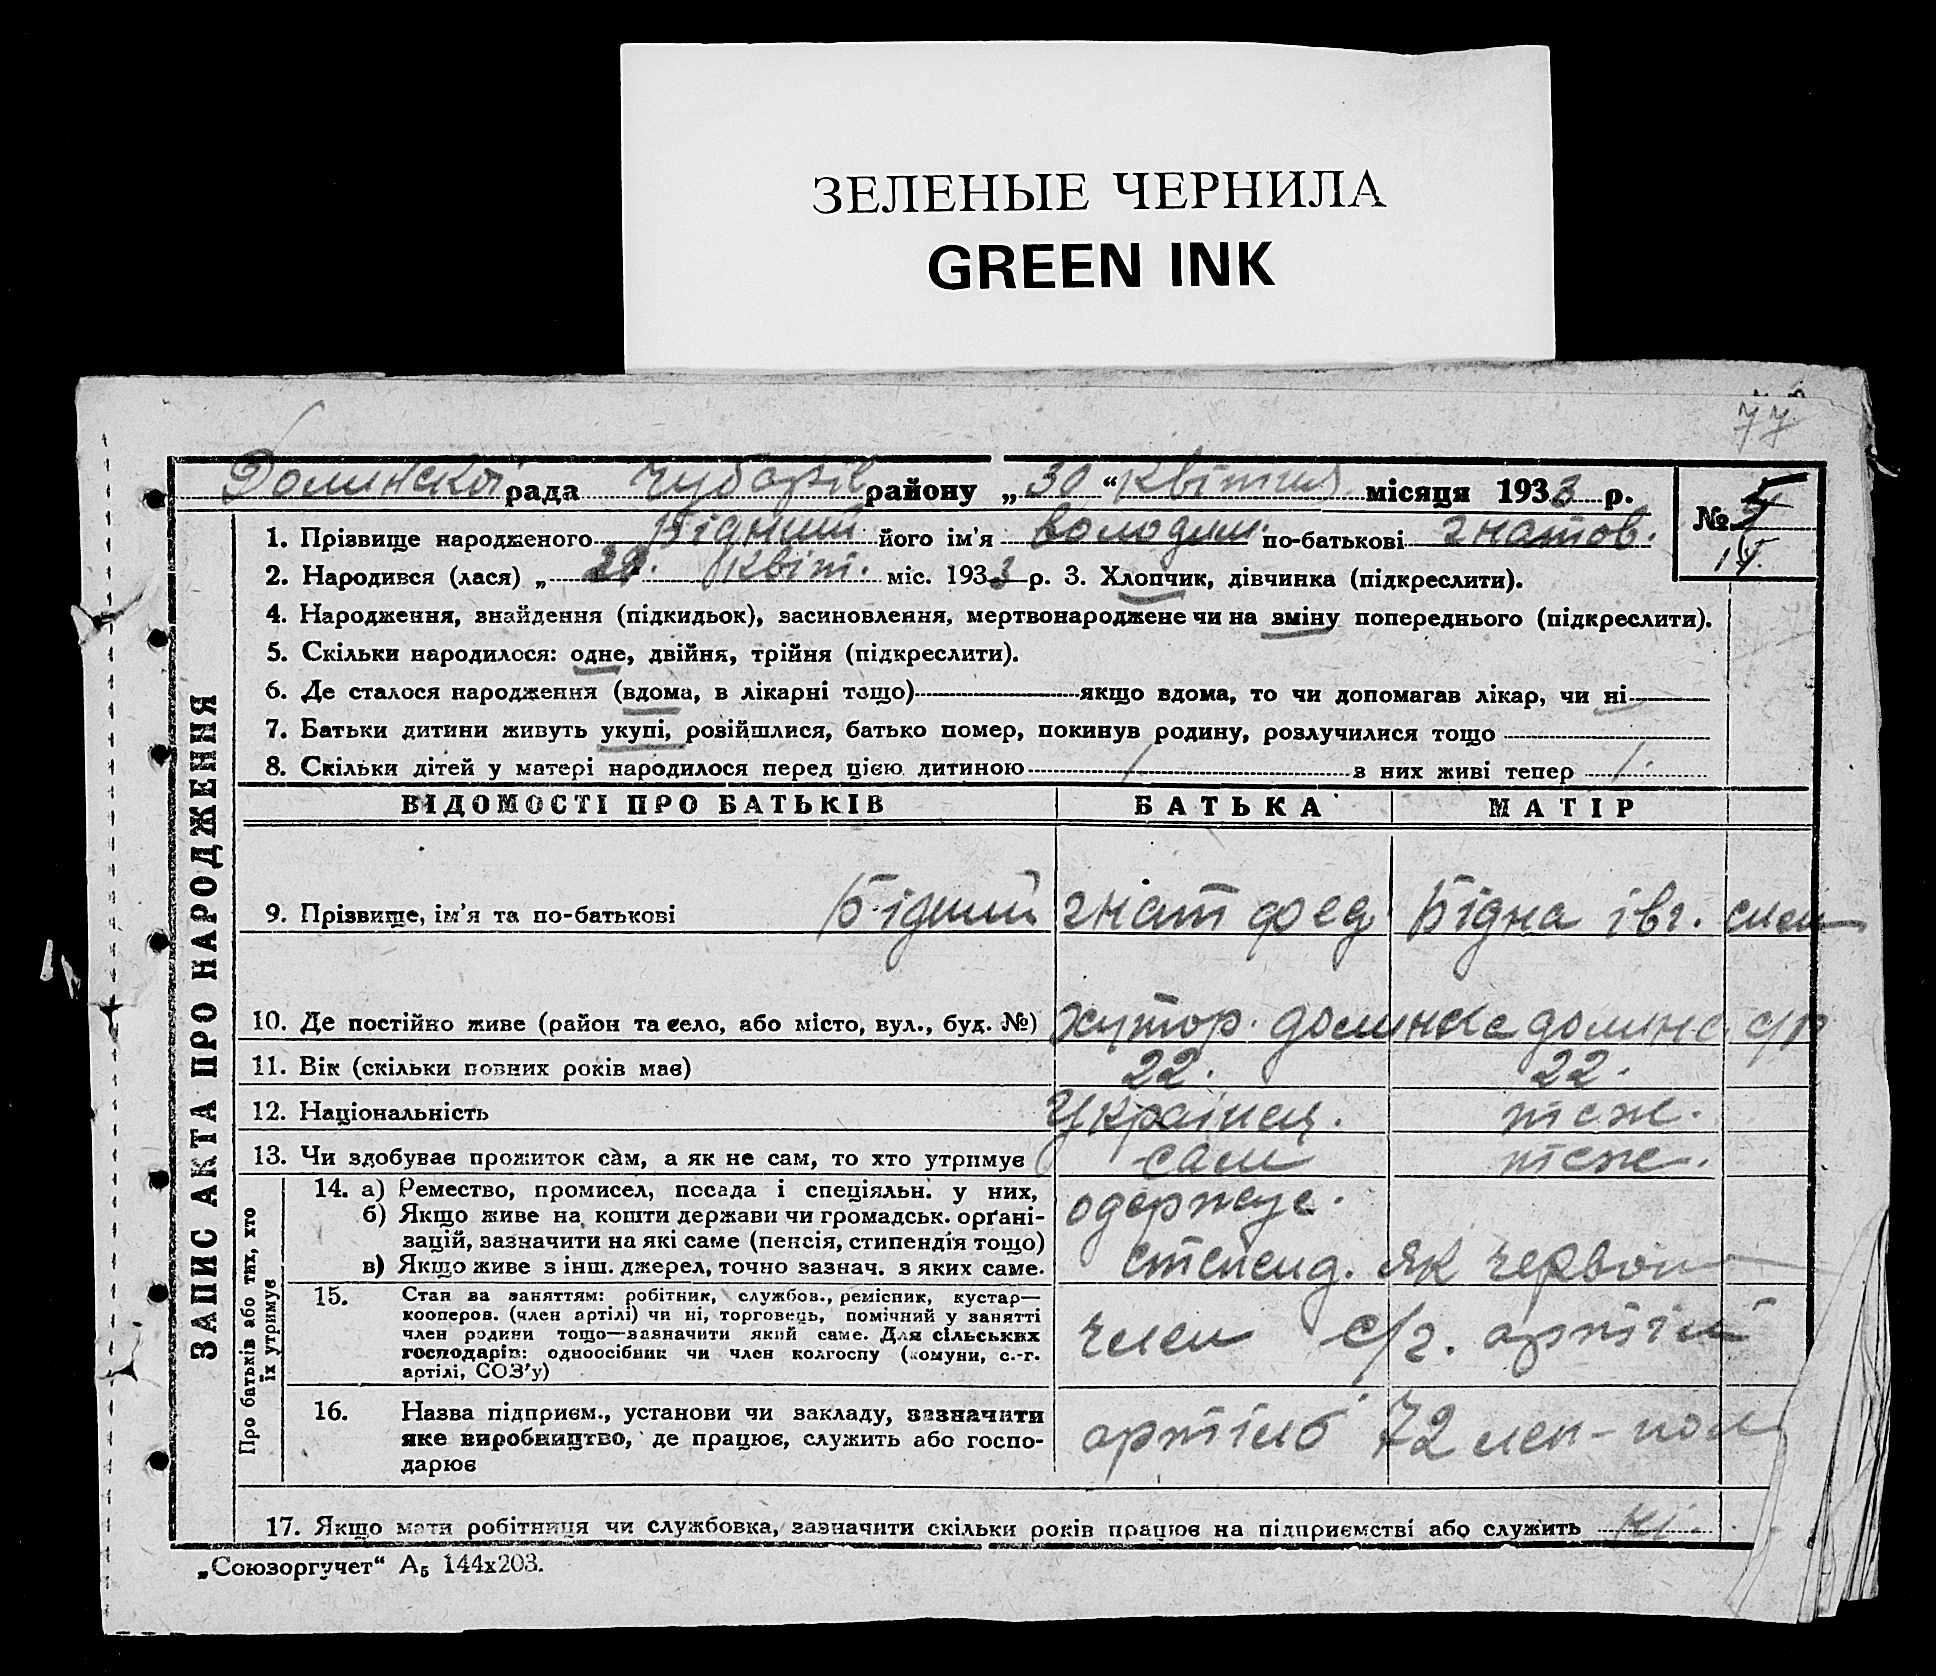 ЗЕЛЕНЫЕ ЧЕРНИЛА
GREEN INK
77
Долинскої рада Чубарів району „30“ квітня місяця 1933 р.
№ 5
1. Прізвище народженого Бідний його ім'я володим. по-батькові гнатов.
2. Народився (лася) „29. квіт. міс. 1933 р. 3. Хлопчик, дівчинка (підкреслити).
4. Народження, знайдення (підкидьок), засиновлення, мертвонароджене чи на зміну попереднього (підкреслити).
5. Скільки народилося: одне, двійня, трійня (підкреслити).
6. Де сталося народження (вдома, в лікарні тощо) якщо вдома, то чи допомагав лікар, чи ні
7. Батьки дитини живуть укупі, розійшлися, батько помер, покинув родину, розлучилися тощо
8. Скільки дітей у матері народилося перед цією дитиною 1 з них живі тепер 1.
ЗАПИС АКТА ПРО НАРОДЖЕННЯ
ВІДОМОСТІ ПРО БАТЬКІВ БАТЬКА МАТІР
9. Прізвище, ім'я та по-батькові Бідний гнат фед. Бідна івг. сем
10. Де постійно живе (район та село, або місто, вул., буд. №) хутор. долинка долинс. с/р
11. Вік (скільки повних років має) 22. 22.
12. Національність Українец. теж.
13. Чи здобуває прожиток сам, а як не сам, то хто утримує сам теж.
Про батьків або тих, хто їх утримує
14. а) Ремество, промисел, посада і спеціяльн. у них, одержує.
б) Якщо живе на кошти держави чи громадськ. орґані-
зацій, зазначити на які саме (пенсія, стипендія тощо)
в) Якщо живе з інш. джерел, точно зазнач. з яких саме. степенд. як червон
15. Стан за заняттям: робітник, службов., ремісник, кустар—
кооперов. (член артілі) чи ні, торговець, помічний у занятті
член родини тощо—зазначити який саме. Для сільських
господарів: одноосібник чи член колгоспу (комуни, с.-г.
артілі, СОЗ'у) член с/г. артіли
16. Назва підприєм., установи чи закладу, зазначити
яке виробництво, де працює, служить або госпо-
дарює артіль 72
17. Якщо мати робітниця чи службовка, зазначити скільки років працює на підприємстві або служить ні.
„Союзоргучет“ А₅ 144х203.